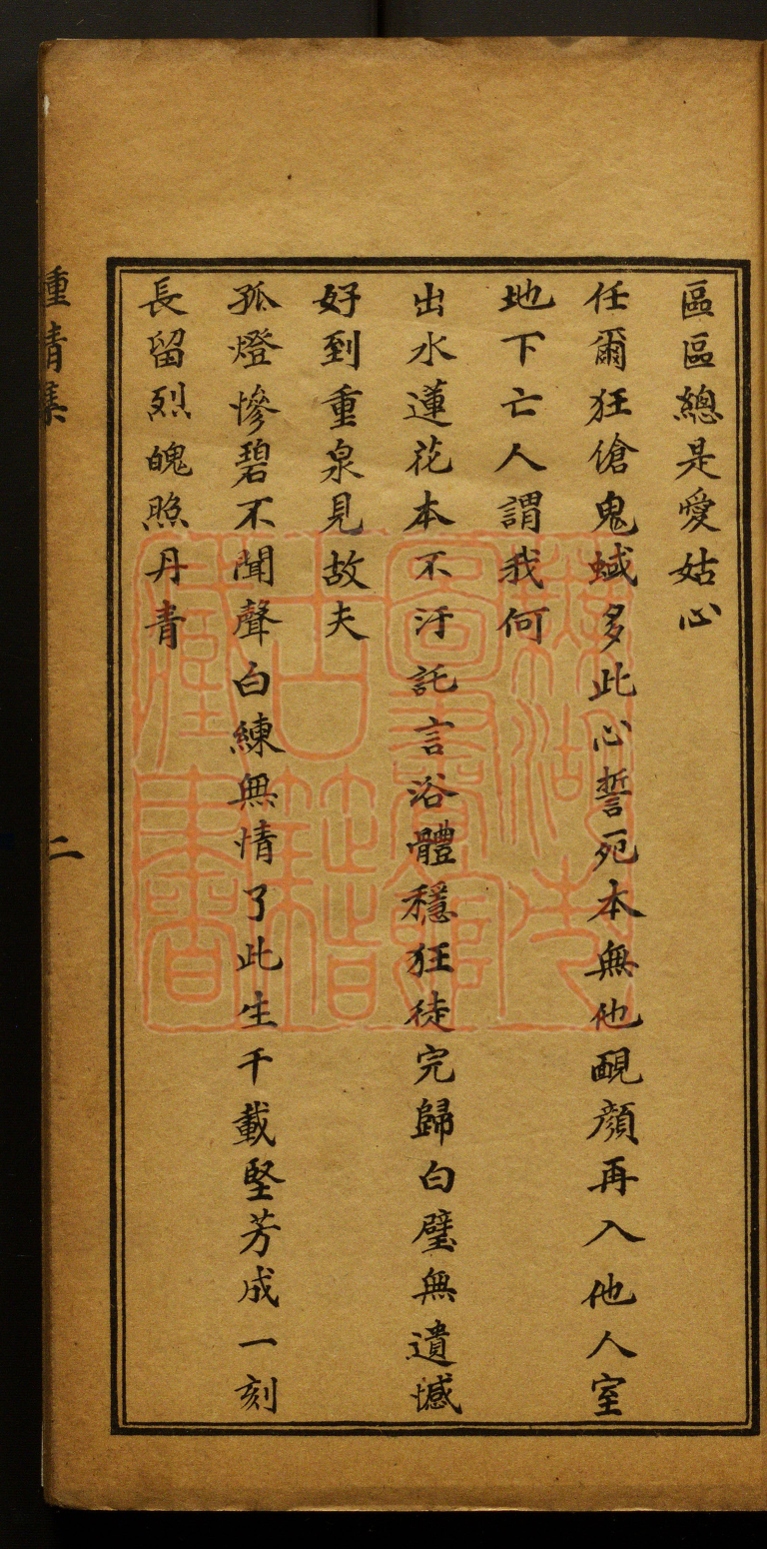 區區總是愛姑心
任爾狂傖鬼蜮多此心誓死本無他靦顏再入他人室
地下亡人謂我何
出水蓮花本不汙託言浴體穩狂徒完歸白璧無遺憾
好到重泉見故夫
孤燈慘碧不聞聲白練無情了此生千載堅芳成一刻
長留烈魄照丹青
二
蕪湖市
圖書館
古籍
藏書